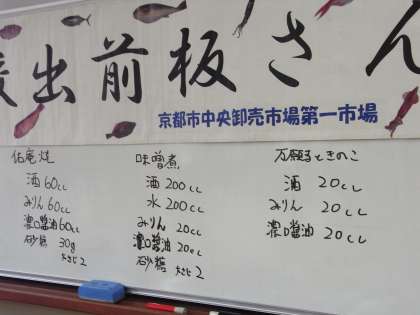 出前板さん
京都市中央卸売市場第一市場
佑庵焼
酒 60cc
みりん 60cc
濃口醤油 60cc
砂糖 30g
大さじ2
味噌煮
酒 200cc
水 200cc
みりん 20cc
濃口醤油 20cc
砂糖 大さじ2
万願寺ときのこ
酒 20cc
みりん 20cc
濃口醤油 20cc